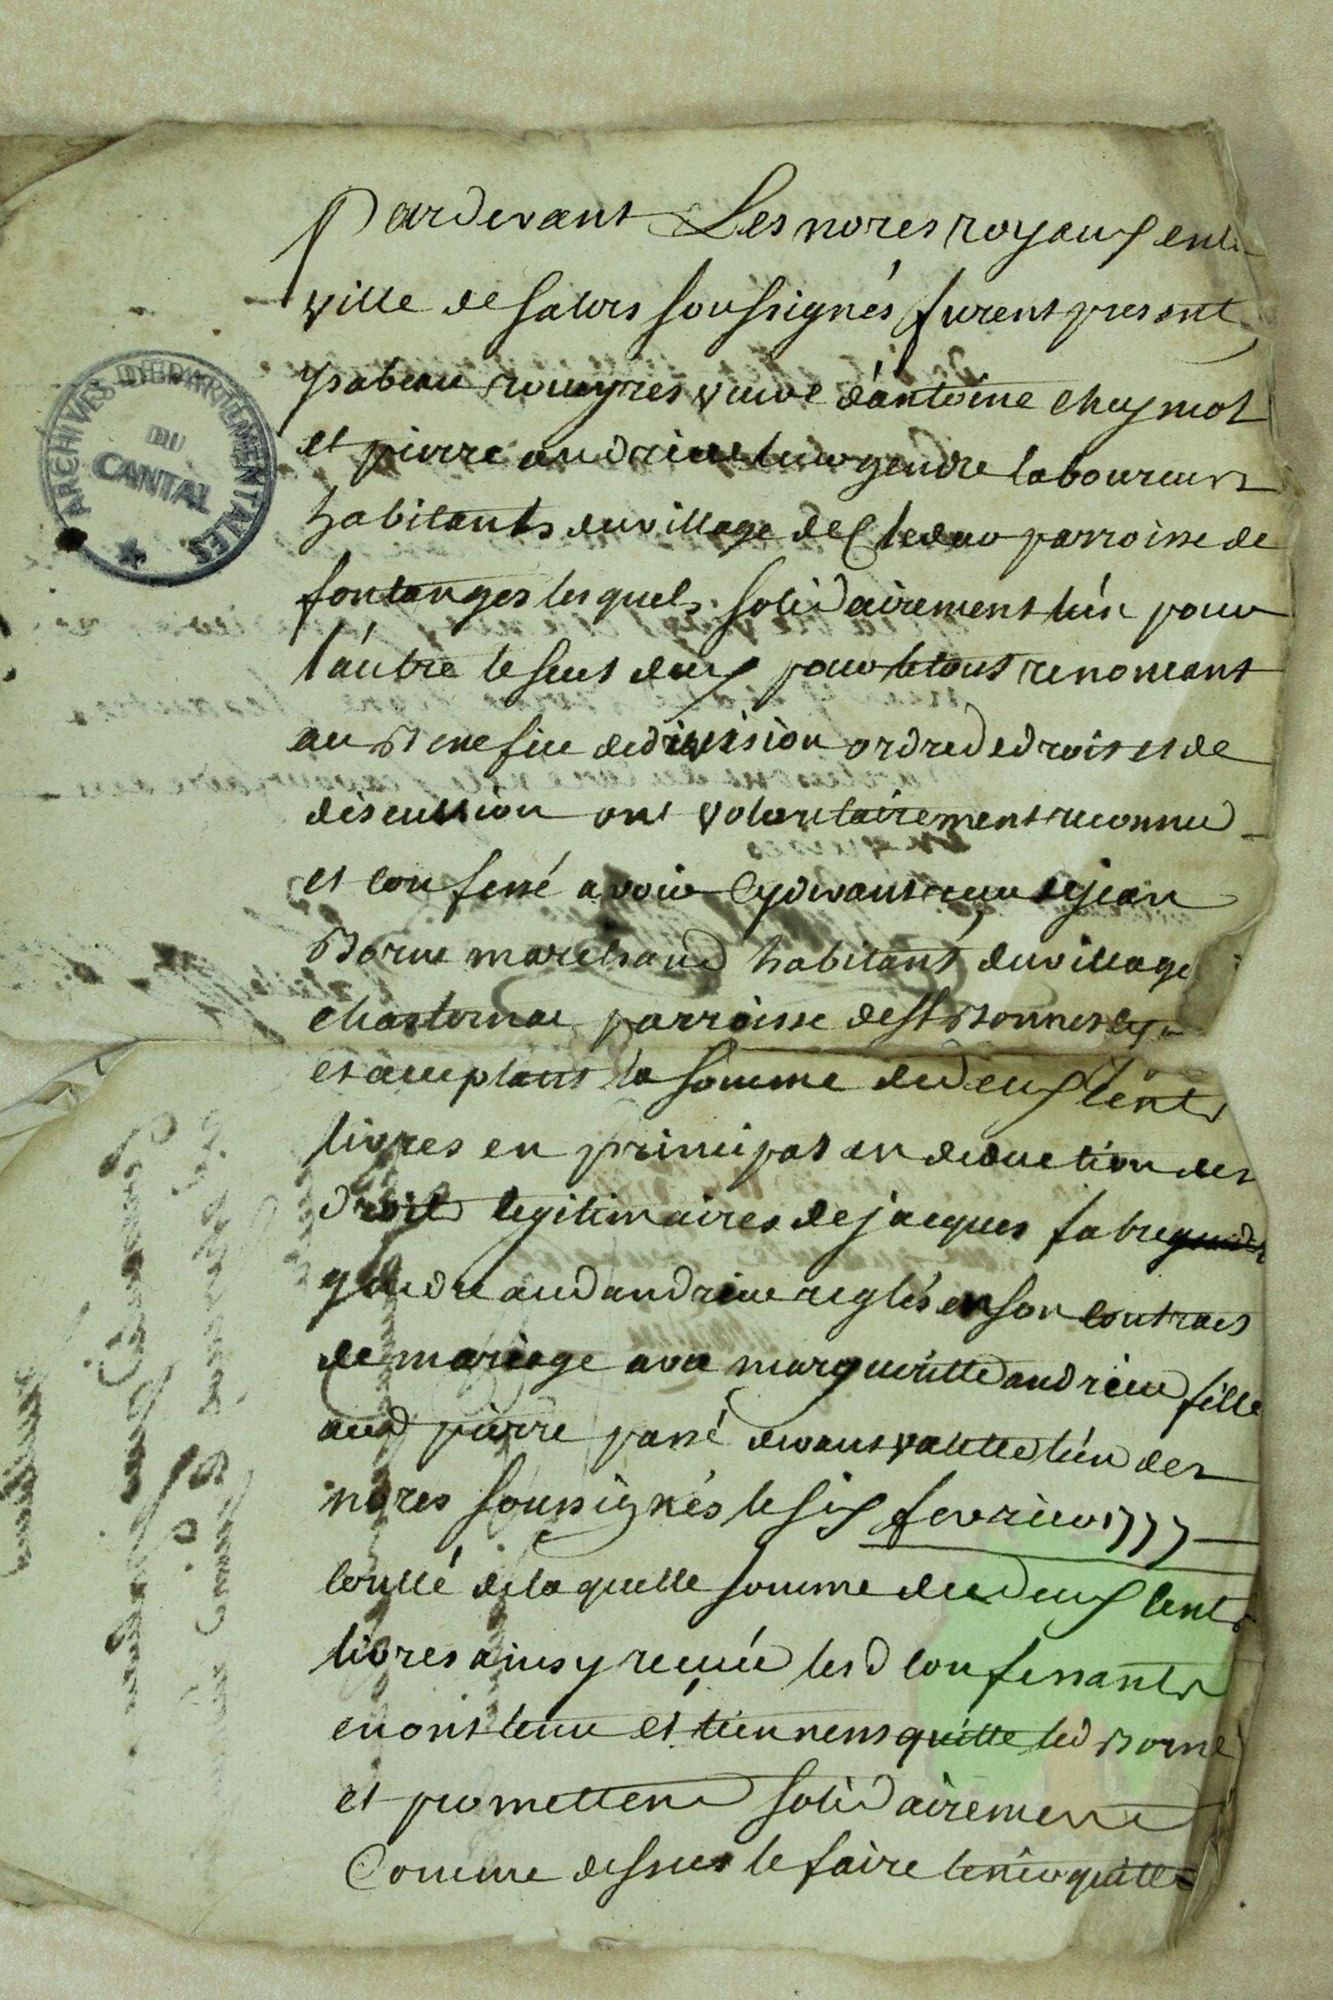 Pardevant Les nores royaux en la
ville de salers soussignés furent present
ysabeau rouyres veuve d'antoine chaymol
et pierre andrieu gendre laboureurs
habitants du village de parroisse de
fontanges lesquels solidairement l'un pour
l'autre le seul deux pour le tout renoncant
au Benefice de division ordre de droit et de
discution ont volontairement reconnu
et confessé avoir Cydevant reçu de jean
Borne marchand habitant du village
chasternac parroisse de st Bonnet
et acceptant la somme de deux cents
livres en principal en deduction des
droits legitimaires de jacques fabre
gendre aud andrieu reglés en son contract
de mariage avec margueritte andrieu fille
aud pierre passé devant l'un des
nores soussignés le six fevrier 1777
Contlé de laquelle somme de deux cents
livres ainsy reçüe lesd confessants
en ont tenu et tiennent quitte led Borne
et promettent solidairement
Comme dessus le faire tenir quitte
ARCHIVES DÉPARTEMENTALES
DU
CANTAL